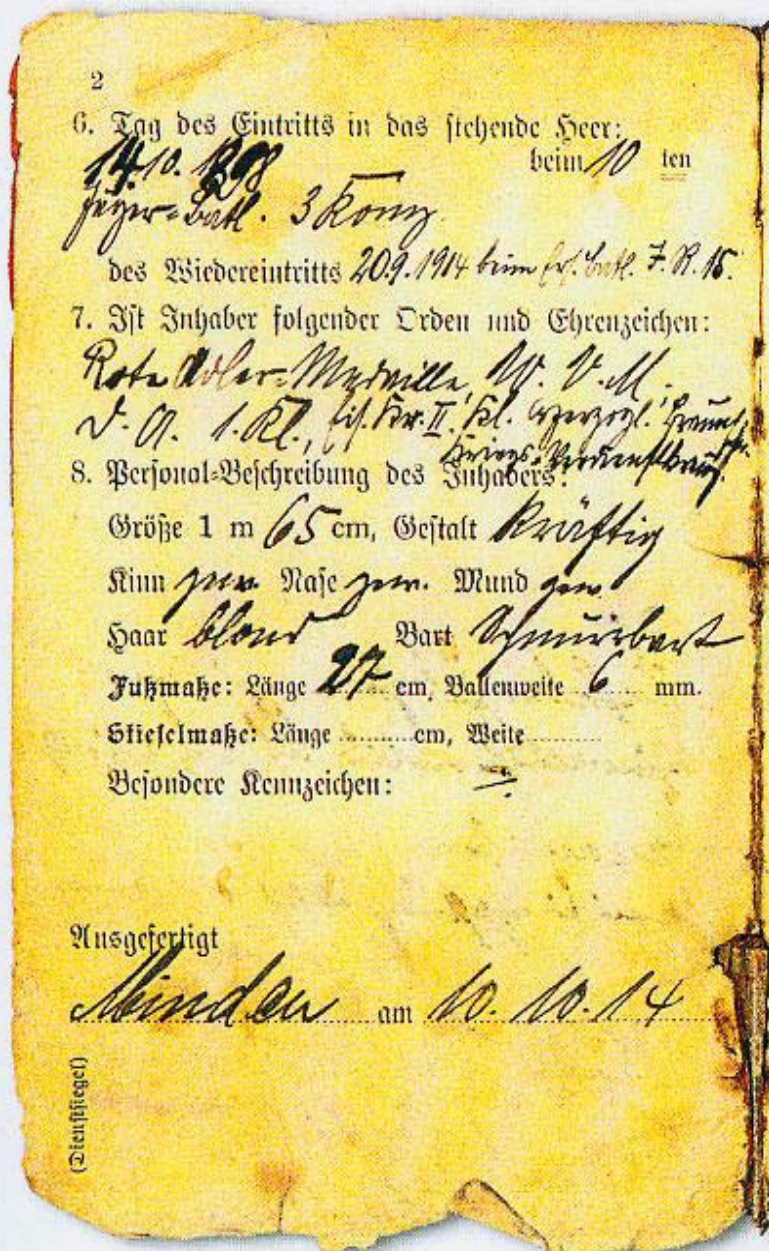 2
6. Tag des Eintritts in das stehende Heer:
14.10.1898 beim 10 ten
Jäger-Batl. 3 Komp
des Wiedereintritts 20.9.1914 beim Ers. Batl. I. R. 15.
7. Ist Inhaber folgender Orden und Ehrenzeichen:
Rote Adler-Medaille,
D. A. 1. Kl., Eis. Kr. II. Kl. Herzogl. Braunschw.
Kriegs-Verdienstkreuz.
8. Personal-Beschreibung des Inhabers:
Größe 1 m 65 cm, Gestalt kräftig
Kinn gew. Nase gew. Mund gew.
Haar blond Bart Schnurrbart
Fußmaße: Länge 27 cm, Ballenweite 6 mm.
Stiefelmaße: Länge ........ cm, Weite ........
Besondere Kennzeichen: ÷
Ausgefertigt
Minden am 10. 10. 14
(Dienstsiegel)